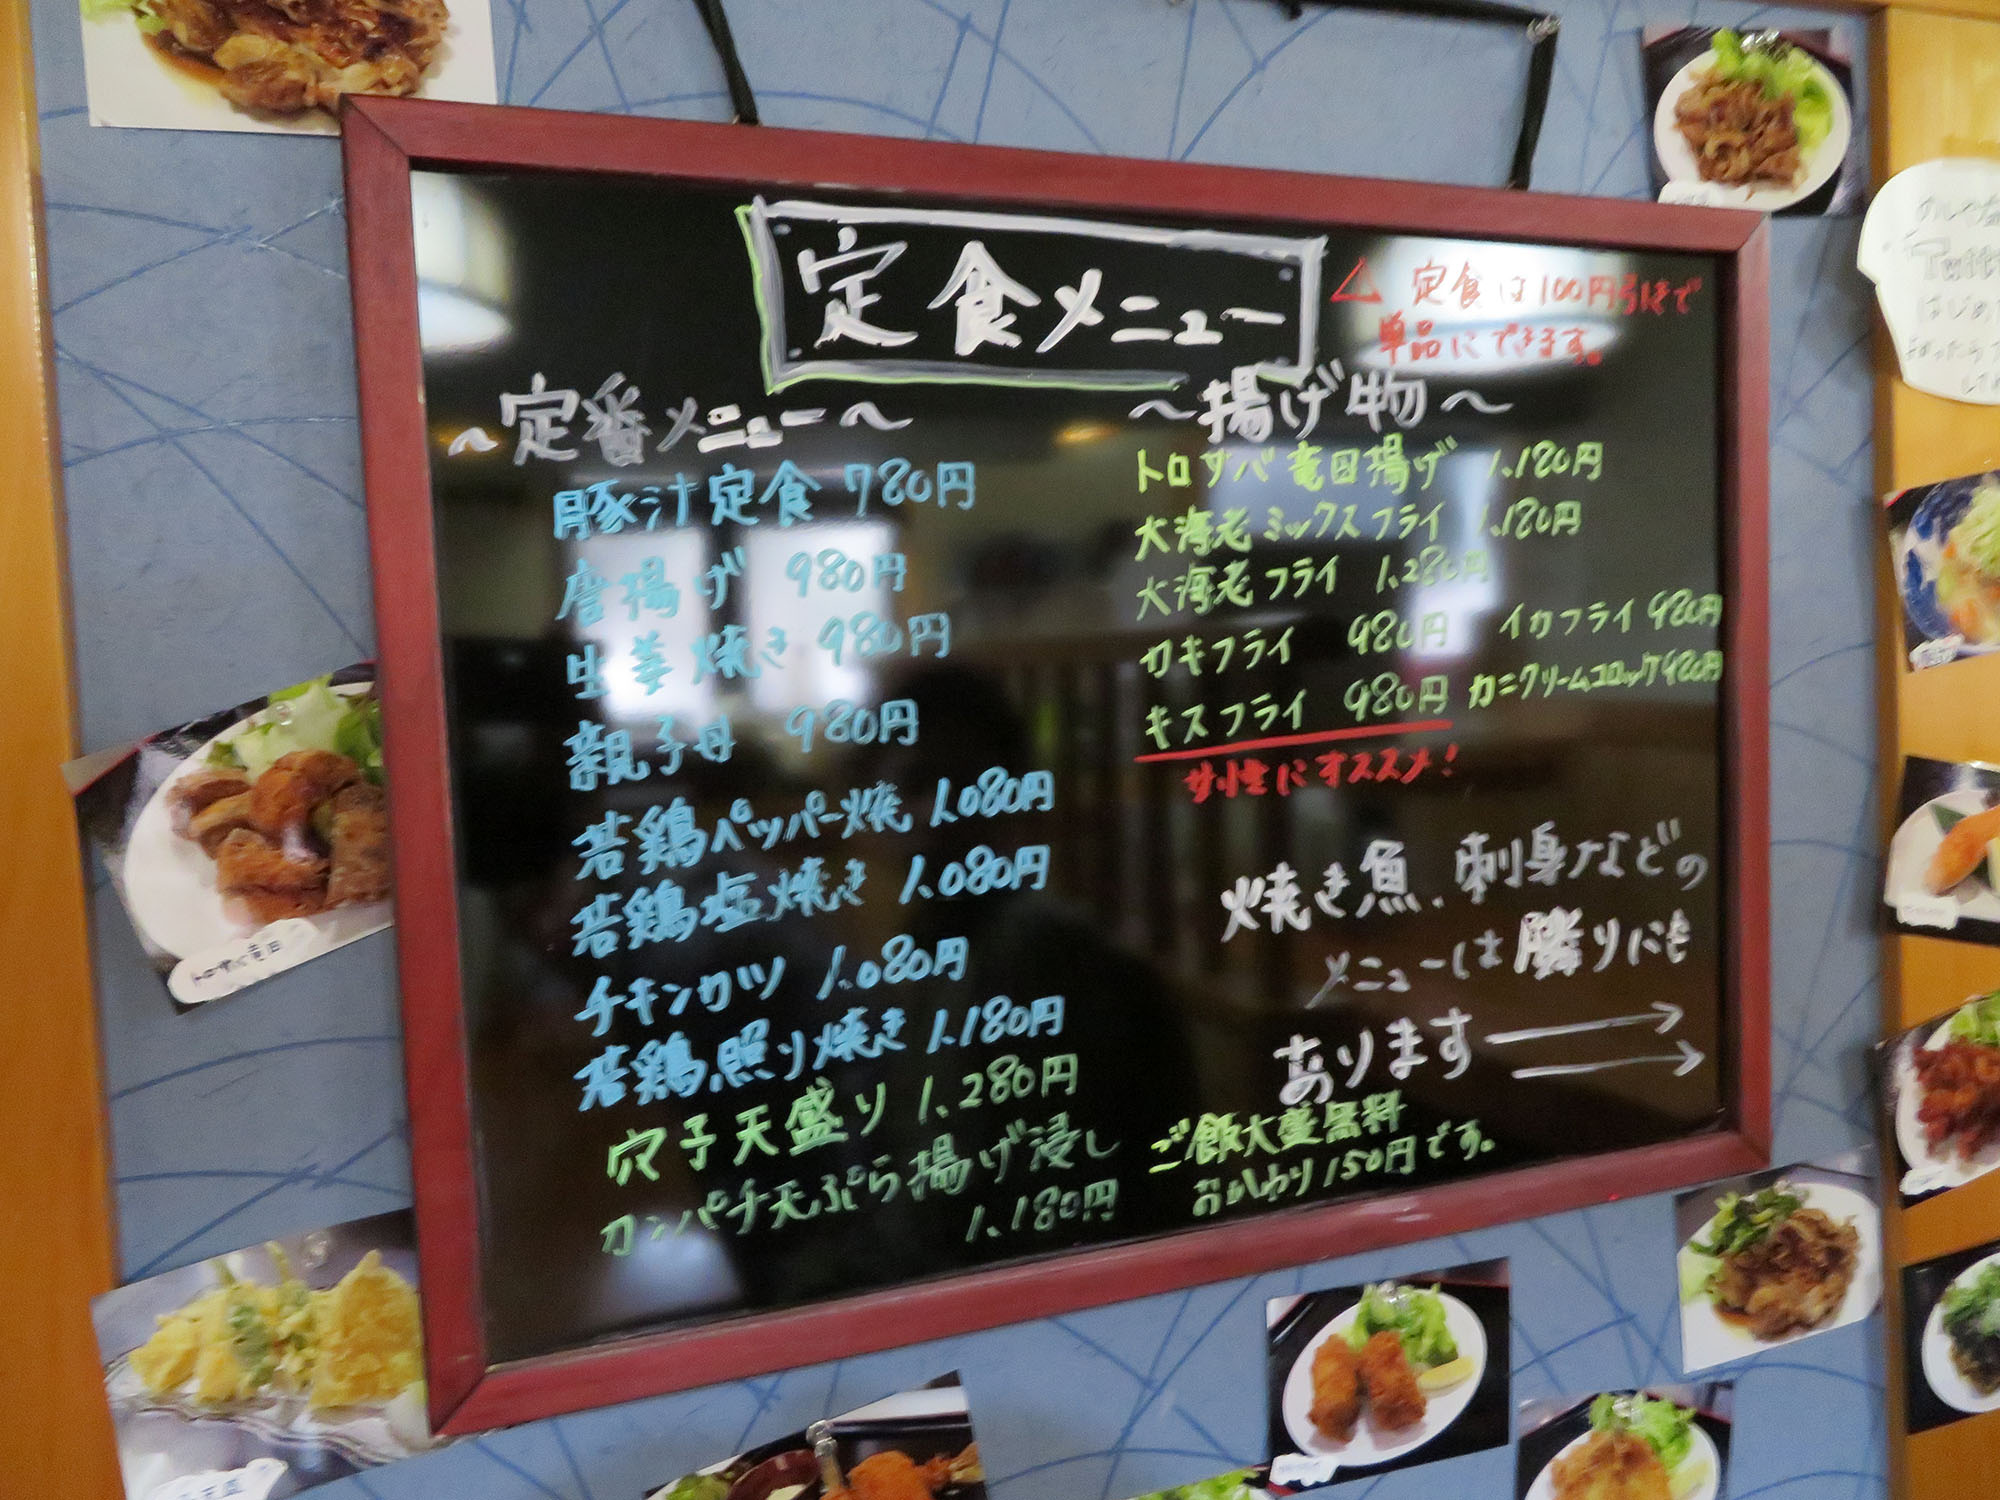 定食メニュー
⚠ 定食は100円引きで
単品にできます。
~定番メニュー~
豚汁定食 780円
唐揚げ 980円
生姜焼き 980円
親子母 980円
若鶏ペッパー焼 1,080円
若鶏塩焼き 1,080円
チキンカツ 1,080円
若鶏照り焼き 1,180円
穴子天盛り 1,280円
カンパチ天ぷら揚げ浸し
1,180円
~揚げ物~
トロサバ竜田揚げ 1,180円
大海老ミックスフライ 1,180円
大海老フライ 1,280円
カキフライ 980円 イカフライ 980円
キスフライ 980円 カニクリームコロッケ 980円
女性にオススメ!
焼き魚、刺身などの
メニューは隣りにも
あります
ご飯大盛無料
おかわり150円です。
トロサバ竜田
はじめ